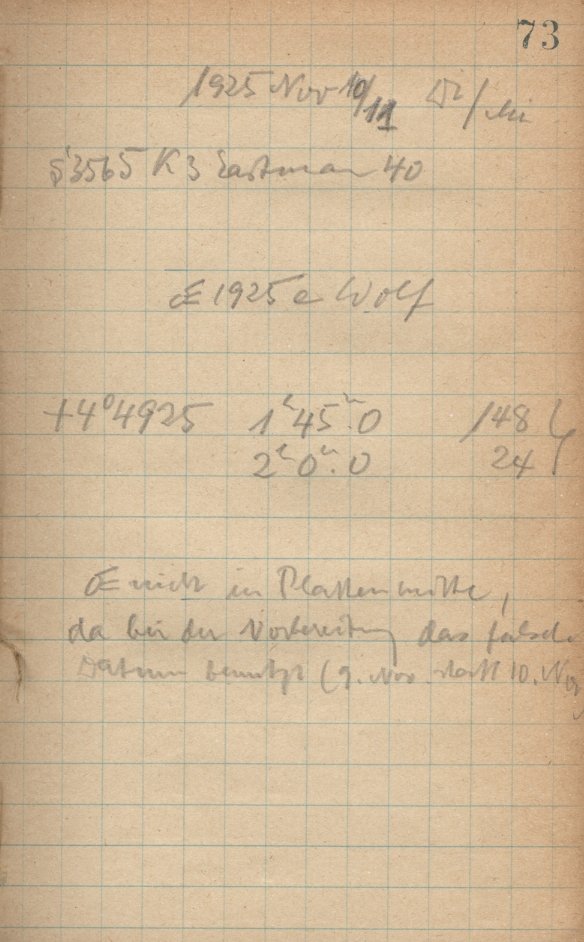 73
1925 Nov 10/11 Di/Mi
S 3565 K3 Eastman 40
☄ 1925 a Wolf
+4°4925 1ʰ45ᵐ.0 148
2ʰ0ᵐ.0 24
☄ nicht in Plattenmitte,
da bei der Vorbereitung das falsche
Datum benutzt (9. Nov. statt 10. Nov